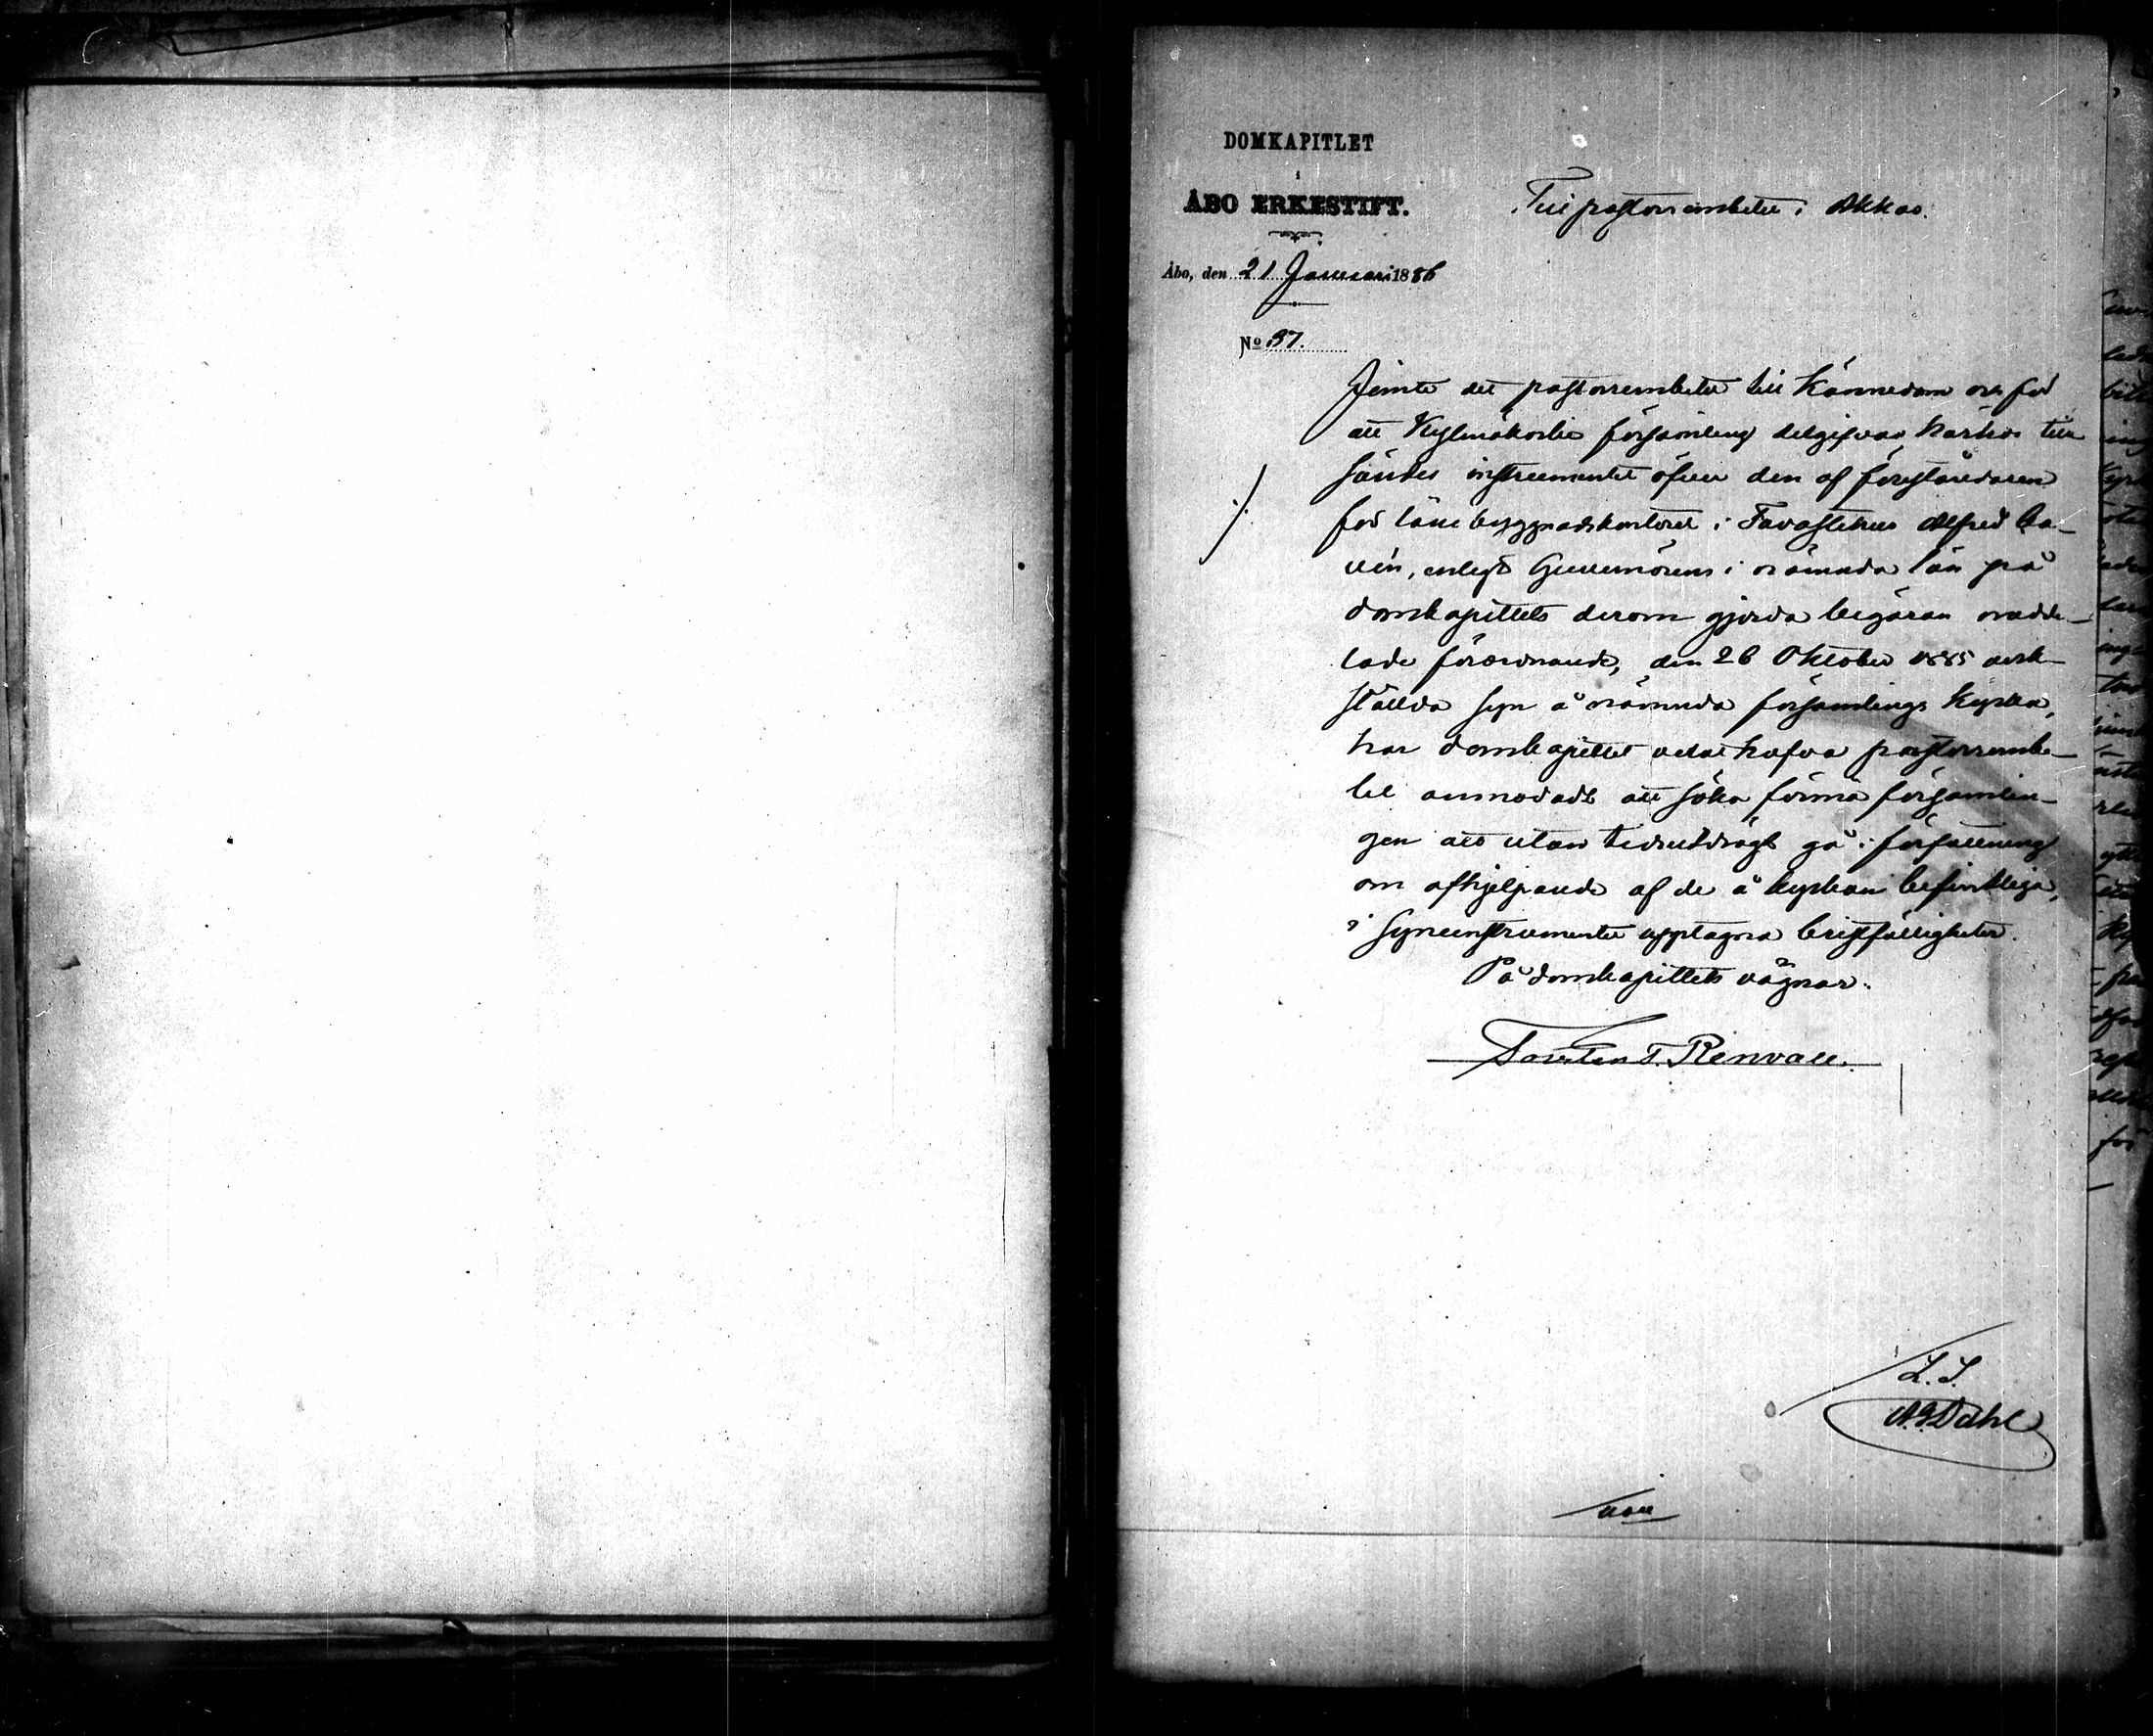 DOMKAPITLET
i
ÅBO ERKESTIFT.
Till pastorsembetet i Akkas.
Åbo, den 21 Januari 1886
No 37.
Jemte det pastorsembetet till kännedom och för
att Kylmäkoski församling delgifvas härhos till
sändes instrumentet öfver den af föreståndaren
för länebyggnadskontoret i Tavastehus Alfred Ca-
wén, enligt Guvernörens i nämnda län på
domkapitlets derom gjorda begäran medde-
lade förordnande, den 26 Oktober 1885 verk-
stälda syn å nämnda församlings kyrka,
har domkapitlet velat hafva pastorsembe-
tet anmodadt att söka förmå församlin-
gen att utan tidsutdrägt gå i författning
om afhjelpande af de å kyrkan befintliga,
i syneinstrumentet upptagna bristfälligheter.
På domkapitlets vägnar:
Torsten T. Renvall.
A. G. Dahl